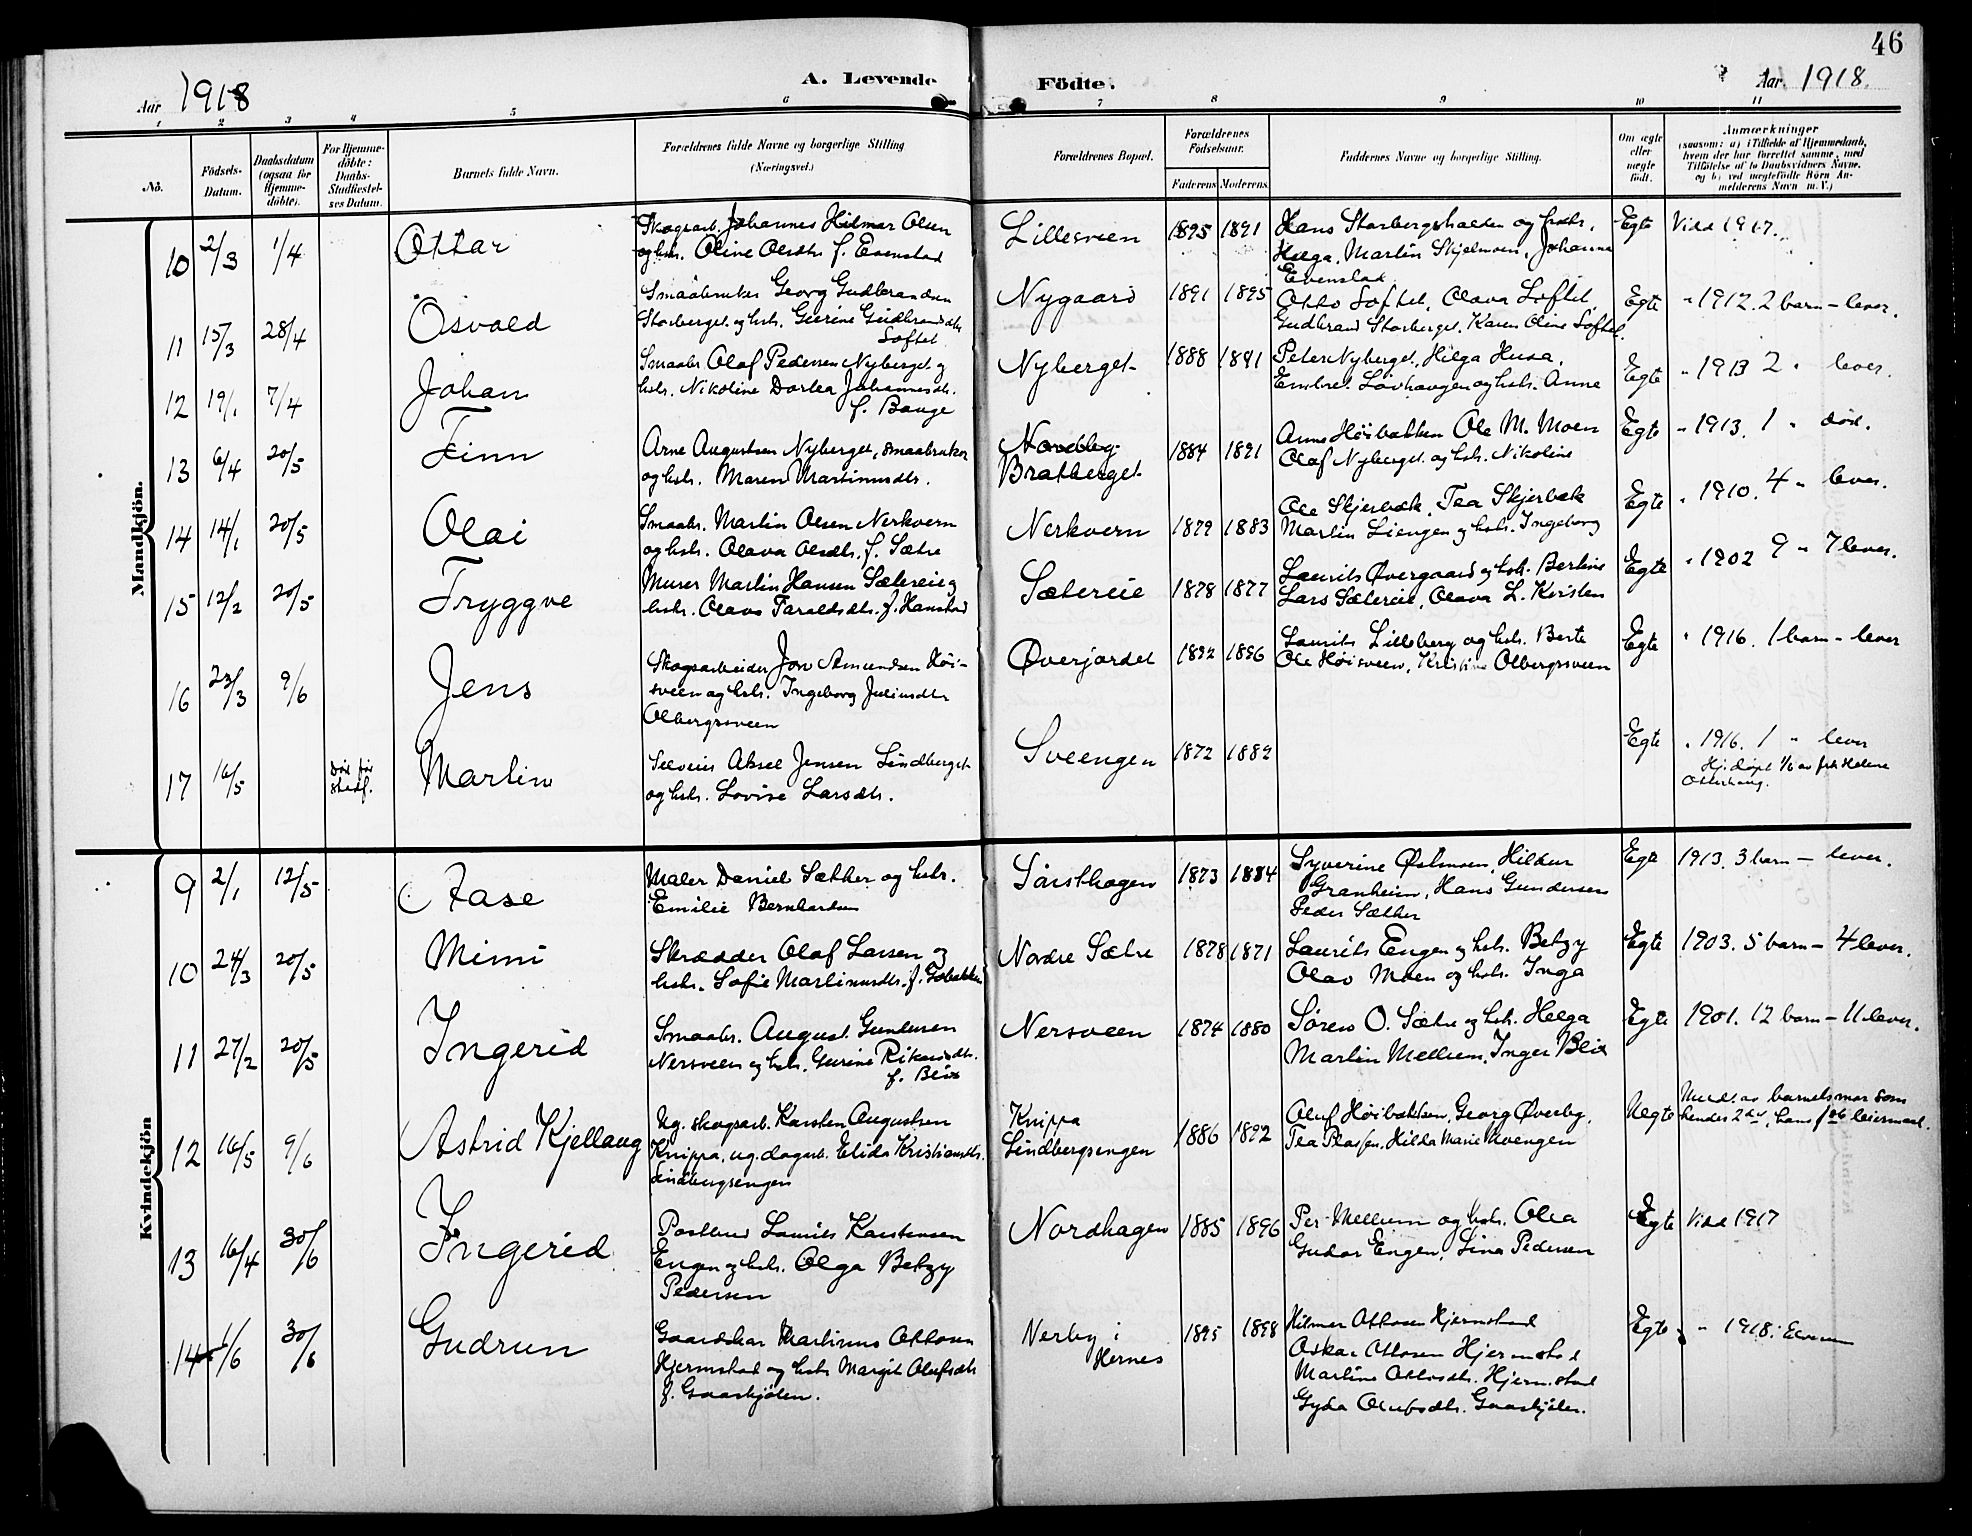 46
Aar 1918
A. Levende
Födte.
Aar 1918.
1 2 3 4 5 6 7 8 9 10 11
No.
Födsels-
Datum.
Daabsdatum
(ogsaa for
Hjemme-
döbte).
For Hjemme-
döbte:
Daabs-
Stadfæstel-
ses Datum.
Barnets fulde Navn.
Forældrenes fulde Navne og borgerlige Stilling
(Næringsvei.)
Forældrenes Bopæl.
Forældrenes
Födselsaar.
Faderens Moderens
Faddernes Navne og borgerlige Stilling.
Om ægte
eller
uægte
födt.
Anmærkninger
(saasom: a) i Tilfælde af Hjemmedaab,
hvem der har forrettet samme, med
Tilföielse af to Daabsvidners Navne,
og b) ved uægtefödte Börn An-
melderens Navn m. V.)
Mandkjön.
10 2/3 1/4 Ottar
Skogsarb. Johannes Hilmar Olsen
og hstr. Oline Olsdtr. f. Evenstad
Lillesveen 1895 1891
Hans Storbergshalden og hstr.
Helga, Martin Skjelmoen, Johanne
Evenstad
Egte Vidd 1917.
11 15/3 28/4 Osvald
Smaabruker Georg Gudbrandsen
Storberget og hstr. Geerine Gudbrandsdtr.
Loftet
Nygaard 1891 1895
Otto Loftet, Olava Loftet,
Gudbrand Storberget, Karen Oline Loftet
Egte " 1912. 2 barn - lever.
12 19/1 7/4 Johan
Smaabr. Olaf Pedersen Nyberget og
hstr. Nikoline Dortea Johannesdtr.
f. Bauge
Nyberget 1888 1891
Peter Nyberget, Helga Husa,
Embret Løvhaugen og hstr. Anne
Egte " 1913 2 " lever.
13 6/4 20/5 Finn
Arne Augustsen Nyberget, smaabruker
og hstr. Maren Martinusdtr.
Nordby
Bratberget 1884 1891
Anne Høibakken Ole M. Moen
Olaf Nyberget og hstr. Nikoline
Egte " 1913. 1 " død.
14 14/1 20/5 Olai
Smaabr. Martin Olsen Nerkvern
og hstr. Olava Olsdtr. f. Sætre
Nerkvern 1879 1883
Ole Skjerbæk, Tea Skjerbæk
Martin Liengen og hstr. Ingeborg
Egte " 1910. 4 " lever.
15 12/2 20/5 Tryggve
Murer Martin Hansen Sætereie og
hstr. Olava Taraldsdtr. f. Hanstad
Sætereie 1878 1877
Laurits Øvergaard og hstr. Bertine
Lars Sætereie, Olava L. Kvisten
Egte " 1902 9 " 7 lever.
16 23/3 9/6 Jens
Skogsarbeider Jon Amundsen Høi-
sveen og hstr. Ingeborg Juliusdtr.
Olbergsveen
Øverjordet 1892 1896
Laurits Lilleberg og hstr. Berte
Ole Høisveen, Kristine Olbergsveen
Egte " 1916. 1 barn - lever
17 16/5 Død før
stadf. Martin
Selveier Aksel Jensen Lindberget
og hstr. Lovise Larsdtr.
Sveengen 1872 1882
Egte " 1916. 1 " lever
Hj. døpt 1/6 av frk Helene
Otterhaug.
Kvindekjön
9 2/1 12/5 Aase
Maler Daniel Sæther og hstr.
Emilie Bernhardsen
Sorsthagen 1873 1884
Syverine Østmoen, Hildur
Granheim, Hans Gundersen
Peder Sæther
Egte 1913. 3 barn - lever.
10 24/3 20/5 Mimi
Skrædder Olaf Larsen og
hstr. Sofie Martinusdtr.
Nordre Sætre 1878 1871
Laurits Engen og hstr. Betzy
Olav Moen og hstr. Inga
Egte 1903. 5 barn - 4 lever.
11 27/2 20/5 Ingerid
Smaabr. August Gundersen
Nersveen og hstr. Gurine Rikardsdtr.
f. Blix
Nersveen 1874 1880
Søren O. Sætre og hstr. Helga
Martin Mellum, Inger Blix
Egte 1901. 12 barn - 11 lever.
12 16/5 9/6 Astrid Kjellaug
Ug. skogsarb. Karsten Augustsen
Knippa, ug. dagarb. Elida Kristiansdtr.
Lindbergsengen
Knippa
Lindbergsengen 1886 1892
Oluf Høibakken, Georg Øverby,
Tea Plassen, Hilda Marie Moengen
Uegte Meld. av barnets mor som
hendes 2det, hans første leiermaal.
13 16/4 30/6 Ingerid
Postbud Laurits Karstensen
Engen og hstr. Olga Betzy
Pedersen
Nordhagen 1885 1896
Per Mellum og hstr. Olea
Gudar Engen, Lina Pedersen
Egte Vidd 1917
14 1/6 30/6 Gudrun
Gaardskar Martinus Ottosen
Hjermstad og hstr. Margit Olufsdtr.
f. Gaaskjølen.
Nerby i
Hernes 1895 1898
Hilmar Ottosen Hjermstad
Oskar Ottosen Hjermstad
Martine Ottosdtr. Hjermstad
Gyda Olufsdtr. Gaaskjølen.
Egte " 1918.